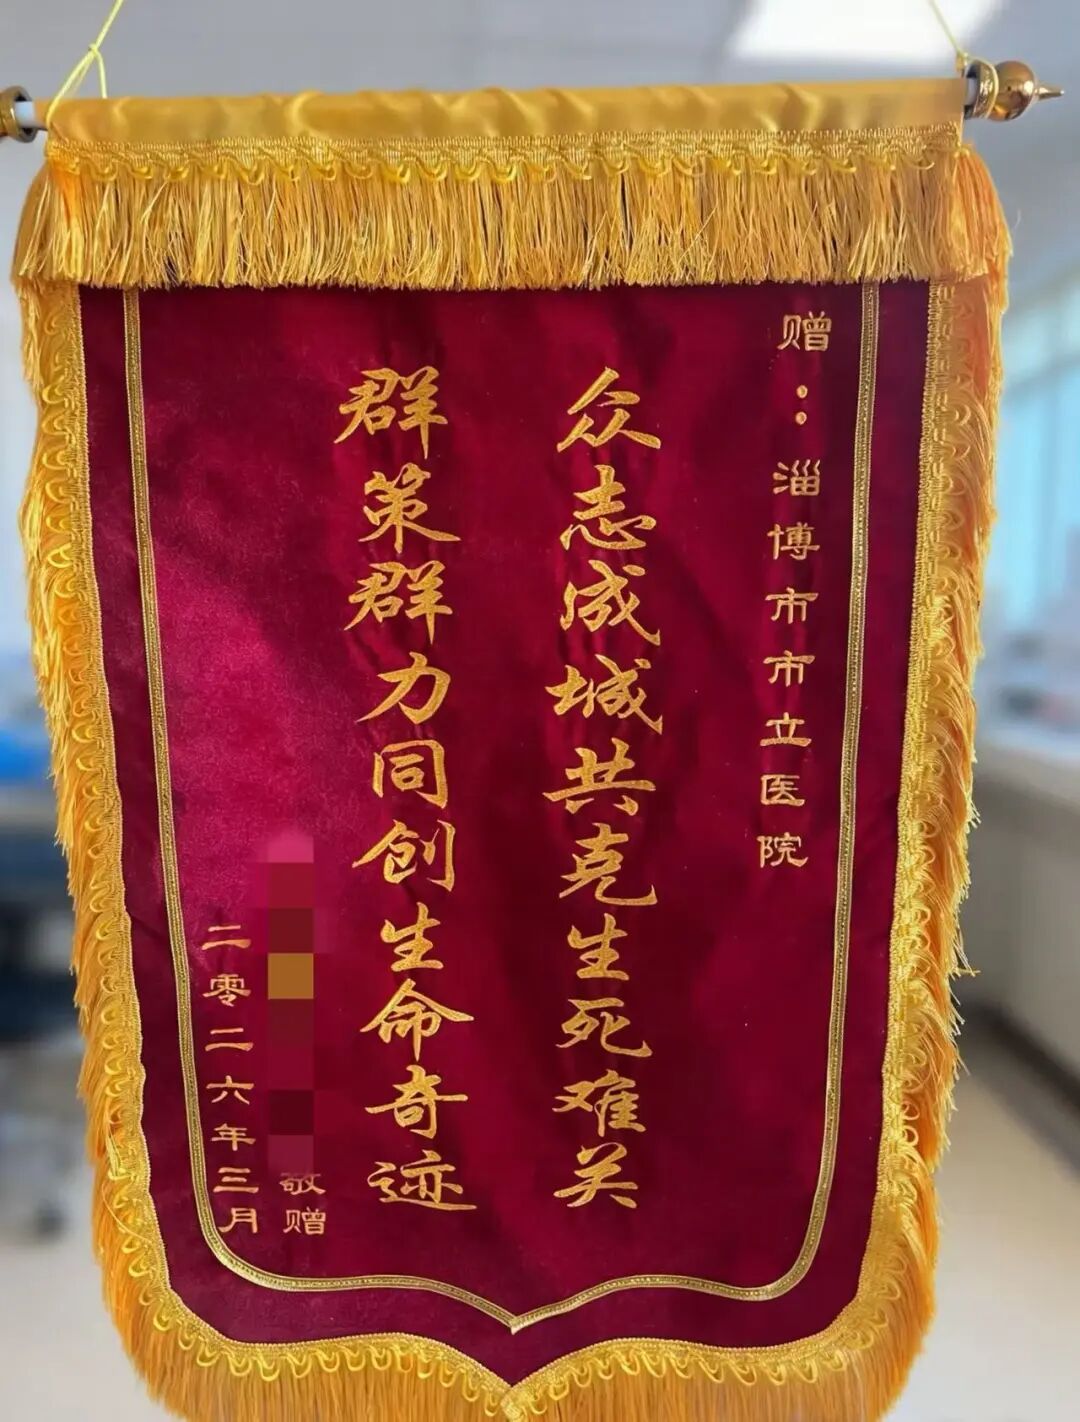 赠：淄博市市立医院
众志成城共克生死难关
群策群力同创生命奇迹
敬赠
二零二六年三月